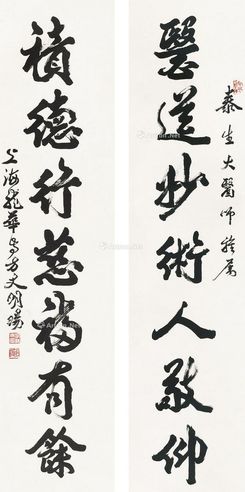 泰生大醫師雅屬
醫道妙術人敬仰
積德行慈福有餘
上海龍華古寺方丈明暘